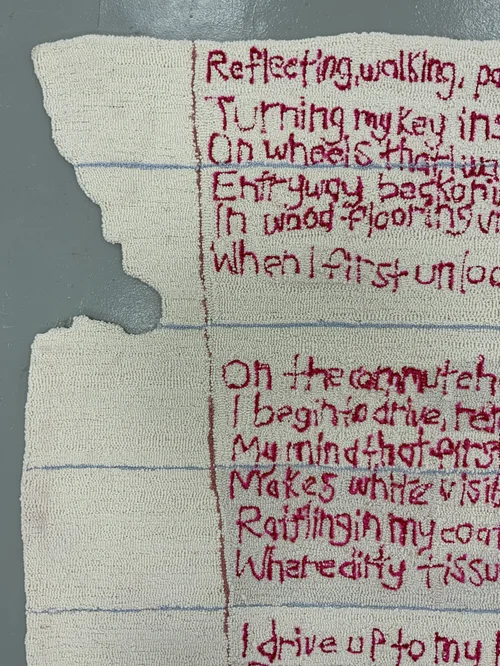 Reflecting, walking, pa
Turning my key in s
On wheels that I wa
Entryway beckoni
In wood-flooring vi
When I first unloc
On the commute h
I begin to drive, rei
My mind that first
Makes white visit
Raifling in my coat
Where ditty tissu
I drive up to my